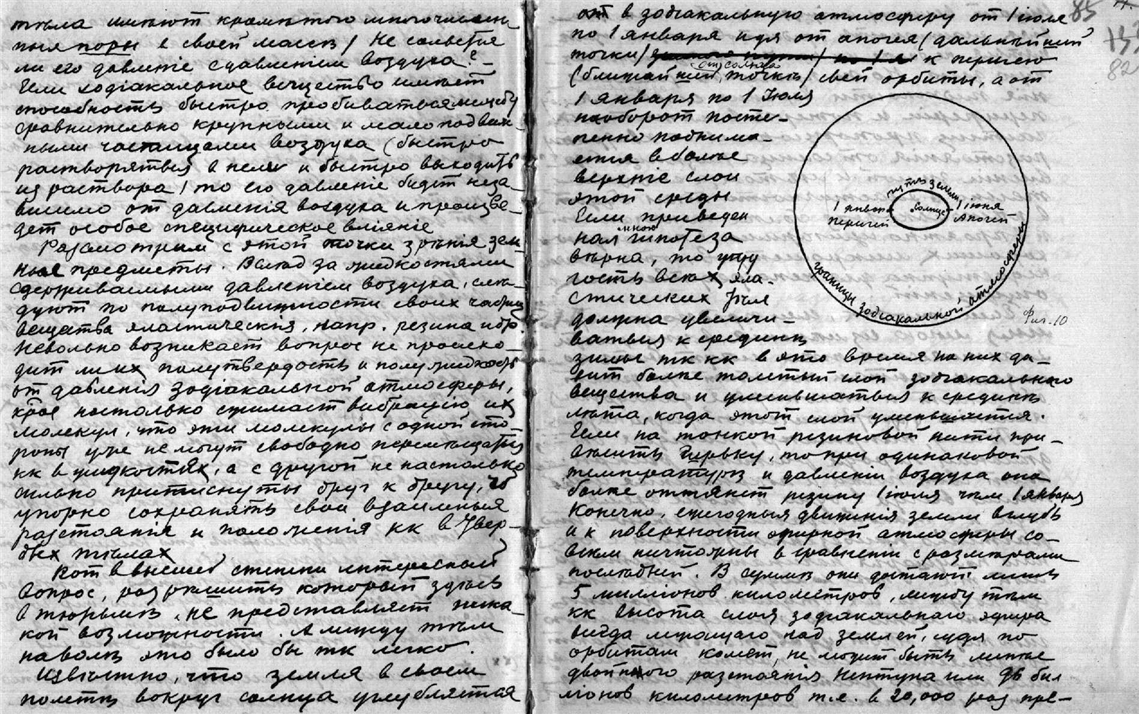 тѣла имѣютъ кромѣ того многочислен-
ныя поры в своей массѣ/ Не сольется
ли его давленіе с давленіем воздуха?
Если зодіакальное вещество имѣет
способность быстро пробиваться между
сравнительно крупными и малоподвиж-
ными частицами воздуха (быстро
растворяться в нем и быстро выходить
из раствора/ то его давленіе будет неза-
висимо от давленія воздуха и произве-
дет особое специфическое вліяніе
Разсмотрим с этой точки зрѣнія зем-
ные предметы. Вслѣд за жидкостями
сдерживаемыми давленіем воздуха, слѣ-
дуют по полуподвижности своих частиц
вещества эластическія, напр. резина и др
Невольно возникает вопрос не происхо-
дит ли их полутвердость и полужидкость
от давленія зодіакальной атмосферы,
крое настолько сжимает вибрацію их
молекул, что эти молекулы с одной сто-
роны уже не могут свободно перемѣщаться
кк в жидкостях, а с другой не настолько
сильно притиснуты друг к другу, чб
упорно сохранять свои взаимныя
разстоянія и положенія кк в твер-
дых тѣлах
Вот в высшей степени интересный
вопрос, разрѣшить который здѣсь
в тюрьмѣ, не представляет ника-
кой возможности. А между тѣм
на волѣ это было бы тк легко.
Извѣстно, что земля в своем
полетѣ вокруг солнца углубляется
85
82
от в зодіакальную атмосферу от 1 іюля
по 1 января идя от апогея (дальнѣйшей
точки) к перигею
от солнца
(ближайшей точкѣ) своей орбиты, а от
1 января по 1 Іюля
наоборот посте-
пенно поднима-
ется в болѣе
верхніе слои
этой среды
Если приведен
ная мною гипотеза
вѣрна, то упру
гость всѣх эла-
стических тѣл
должна увеличи-
ваться к срединѣ
зимы тк кк в это время на них да-
вит болѣе толстый слой зодіакальнаго
вещества и уменьшаться к срединѣ
лѣта, когда этот слой уменьшается.
Если на тонкой резиновой нити при-
вѣсить гирьку, то при одинаковой
температурѣ и давленіи воздуха она
болѣе оттянет резину 1 іюля чѣм 1 января
Конечно, ежегодныя движенія земли вглубь
и к поверхности эфирной атмосферы со-
всѣм ничтожны в сравненіи с размѣрами
послѣдней. В суммѣ они достают лишь
5 милліонов километров, между тѣм
кк высота слоя зодіакальнаго эфира
всегда лежащаго над землей, судя по
орбитам комет, не может быть менѣе
двойного разстоянія Нептуна или 96 бил
ліонов километров т.е. в 20,000 раз пре-
путь земли
Солнце
1 января
перигей
1 іюня
Апогей
границы зодіакальной атмосферы
Фиг. 10